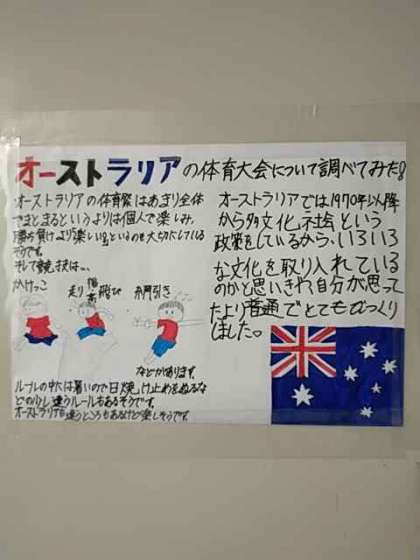 オーストラリアの体育大会について調べてみた!
オーストラリアの体育祭はあまり全体
でまとまるというよりは個人で楽しみ、
勝ち負けより楽しい!というのも大切にしている
そうです。
そして競技は…、
かけっこ
走り幅
高飛び
綱引き
などがあります。
ルールの中には暑いので日焼け止めをぬるな
どの少し違うルールもあるそうです。
オーストラリアも違うところもあるけど楽しそうです。
オーストラリアでは1970年以降
から多文化社会という
政策をしているから、いろいろ
な文化を取り入れている
のかと思いきや、自分が思っ
てたより普通でとてもびっくり
しました。